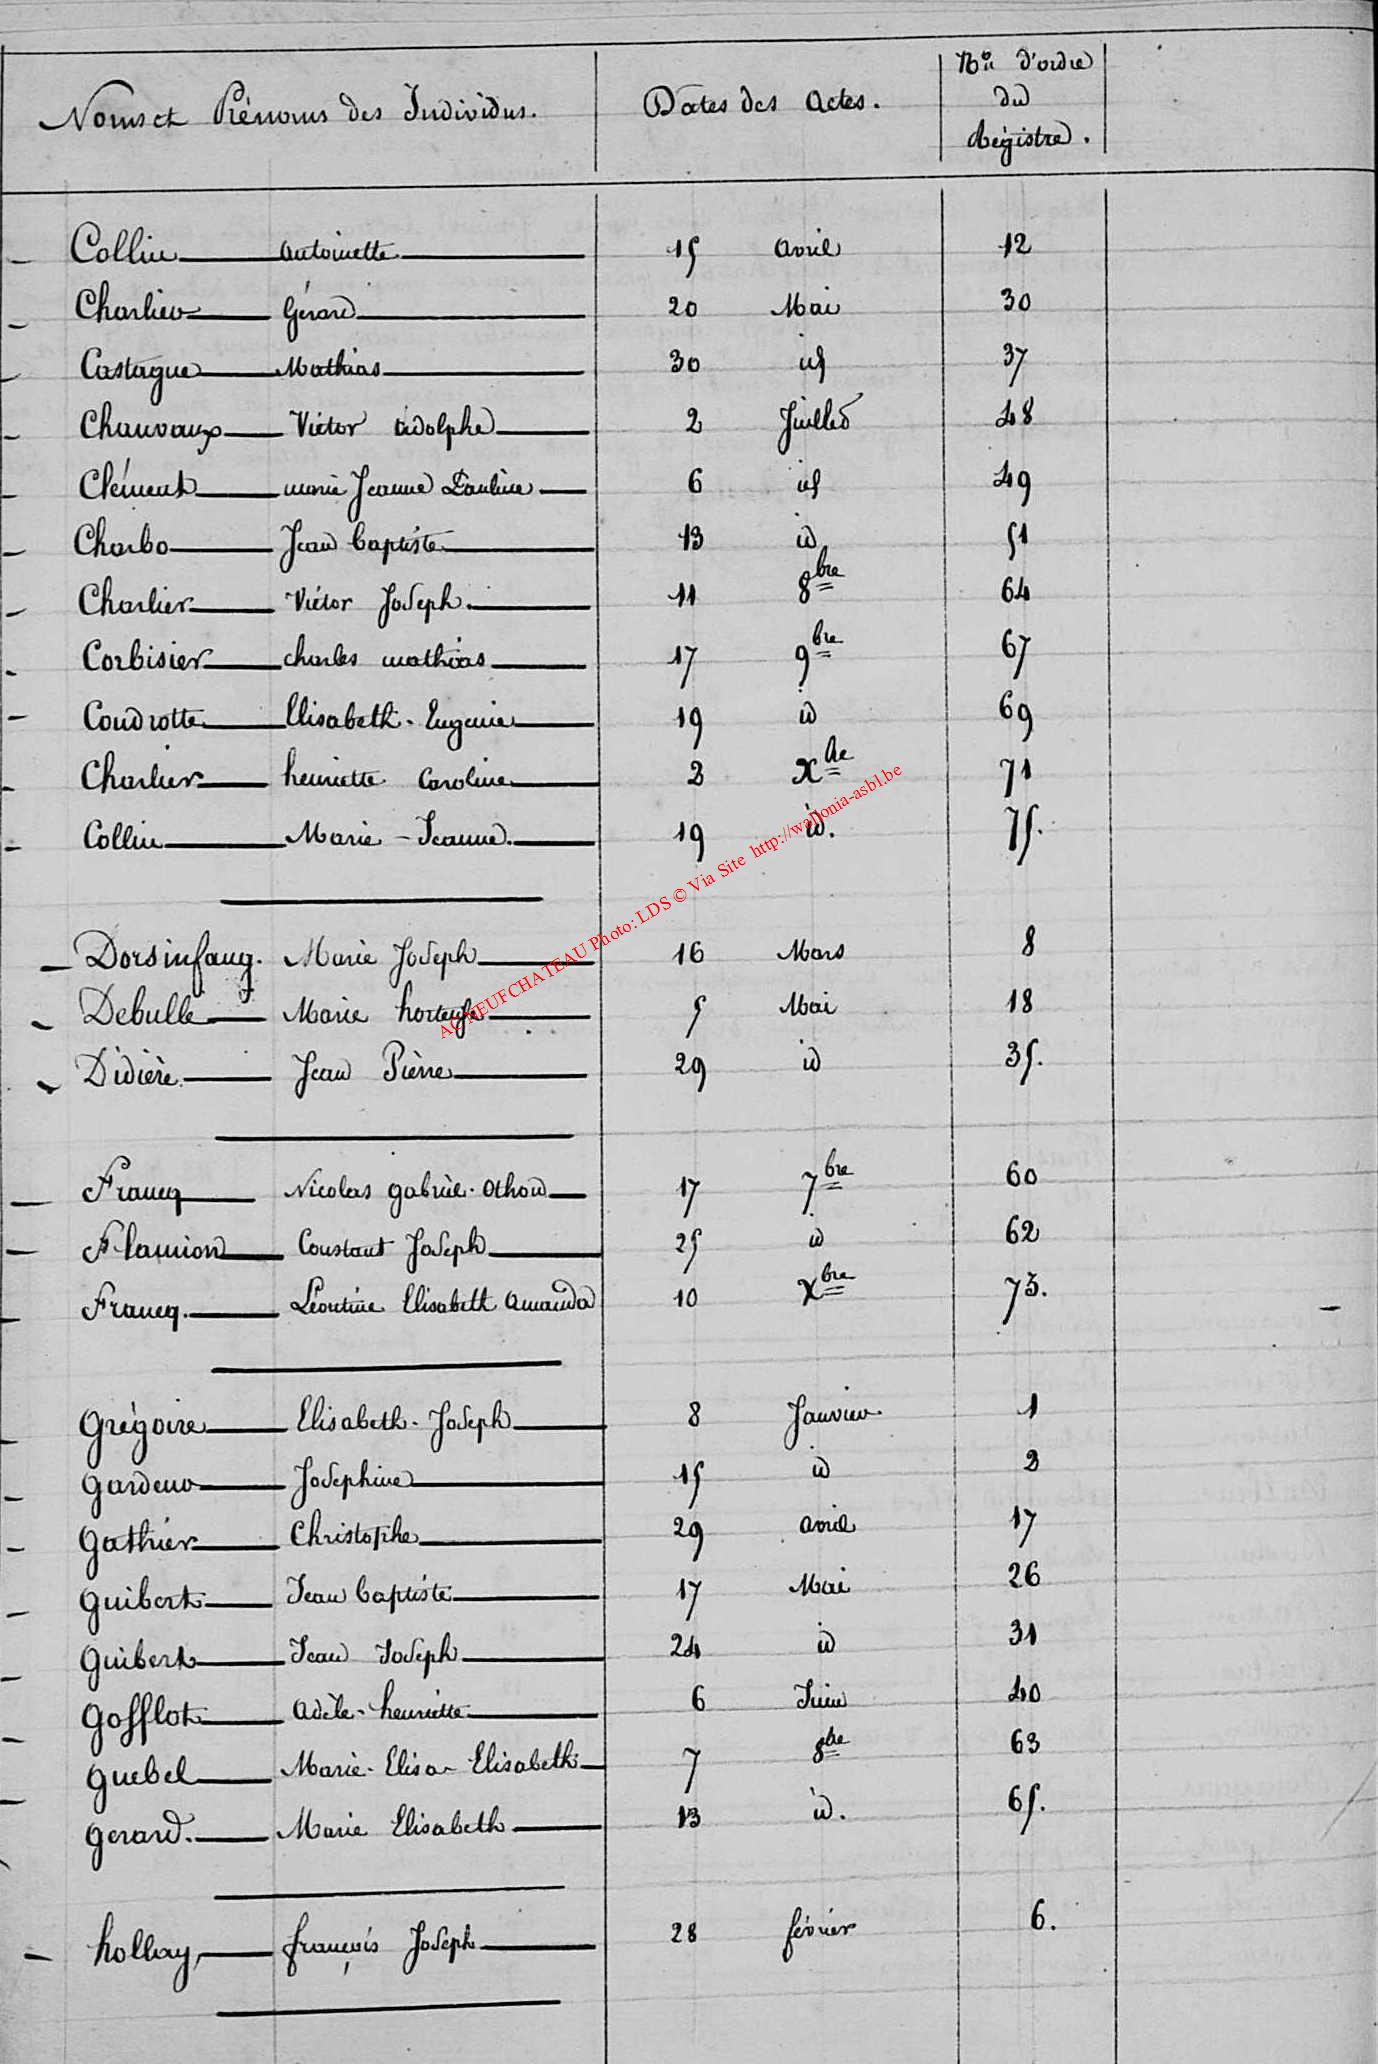 Noms et Prénoms des Individus. Dates des Actes. Nos d'ordre du Régistre.
Collin Antoinette 15 avril 12
Charlier Gérard 20 Mai 30
Castagne Mathias 30 id 37
Chauvaux Victor Adolphe 2 Juillet 48
Clément marie Jeanne Pauline 6 id 49
Charbo Jean baptiste 13 id 51
Charlier Victor Joseph. 11 8bre 64
Corbisier charles mathias 17 9bre 67
Coudrotte Elisabeth-Eugenie 19 id 69
Charlier henriette Caroline 2 Xbre 71
Collin Marie-Jeanne. 19 id. 75.
Dorsinfang. Marie Joseph 16 Mars 8
Debulle Marie hortense 5 Mai 18
Didière. Jean Pièrre 29 id 35.
Francq Nicolas gabriel-Othon 17 7bre 60
Flamion Constant Joseph 25 id 62
Francq. Léontine Elisabeth Amanda 10 Xbre 73.
Grégoire Elisabeth-Joseph 8 Janvier 1
Gardeur Josephine 15 id 2
Gathier Christophe 29 avril 17
Guibert Jean baptiste 17 Mai 26
Guibert Jean Joseph 24 id 31
Gofflot Adèle-henriette 6 Juin 40
Guebel Marie-Elisa-Elisabeth 7 8bre 63
Gerard. Marie Elisabeth 13 id. 65.
hollay, françois Joseph 28 février 6.
AC NEUFCHATEAU Photo: LDS © Via Site http://wallonia-asbl.be